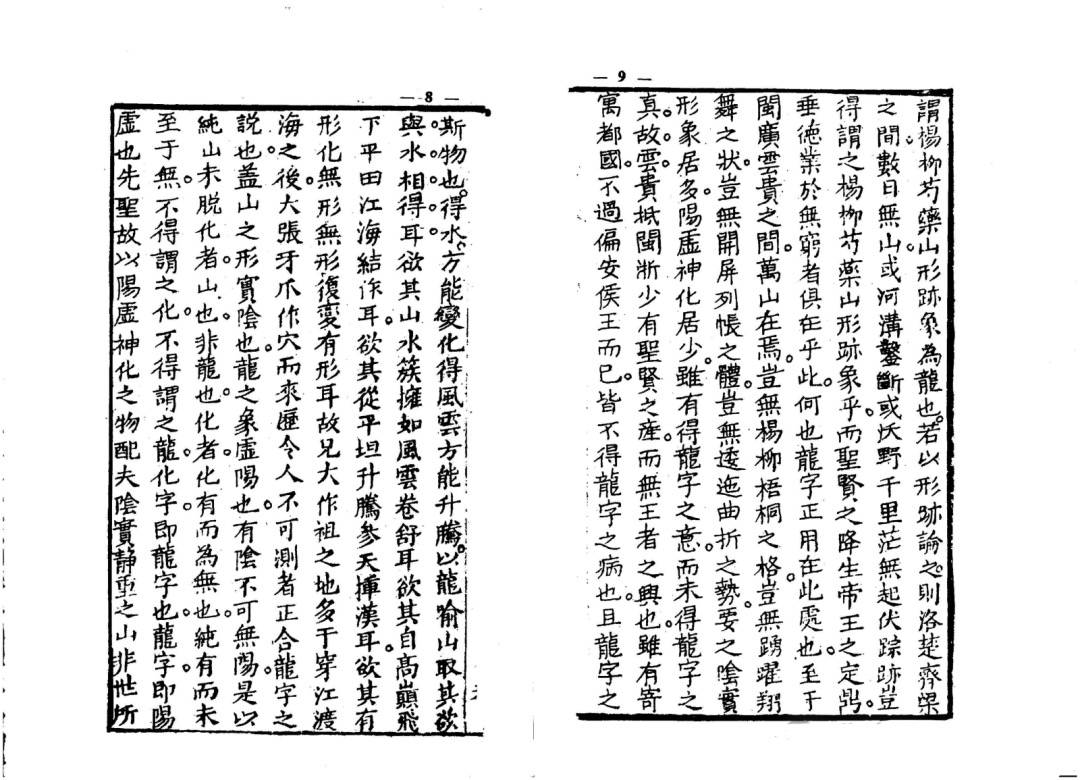 — 8 —
斯物也。得水。方能變化得風雲方能升騰。以龍喻山取其欲
與。水。相。得。耳欲其山水簇擁如風雲卷舒耳欲其自高巔飛
下平田江海結作耳。欲其從平坦升騰參天揮漢耳。欲其有
形化無形無形復變有形耳故凡大作祖之地多于穿江渡
海之。後大張牙爪作穴而來歷令人不可測者正合龍字之
説也。蓋山之形實。陰也。龍之象虛。陽也。有陰不可無陽。是以
純山未脱化者。山也。非龍也。化者。化有而為無也。純有而未
至于無。不得謂之化。不得謂之龍。化字即龍字也。龍字。即陽
虛也先聖故以陽虛神化之物配夫陰實静重之山非世所
— 9 —
謂楊柳芍藥山形跡象為龍也。若以形跡論之。則洛楚齊梁
之間。數日無山。或河溝鑿斷或沃野千里茫無起伏踪跡。豈
得謂之楊柳芍藥山形跡象乎。而聖賢之降生帝王之定鼎。
垂德業於無窮者俱在乎此。何也龍字正用在此處也。至于
閩廣雲貴之間。萬山在焉。豈無楊柳梧桐之格。豈無踴躍翔
舞之狀。豈無開屏列帳之體。豈無逶迤曲折之勢。要之陰實
形象居多。陽虛神化居少。雖有得龍字之意。而未得龍字之
真。故雲貴抵閩浙少有聖賢之產。而無王者之興也。雖有寄
寓都國。不過偏安侯王而已。皆不得龍字之病也。且龍字之